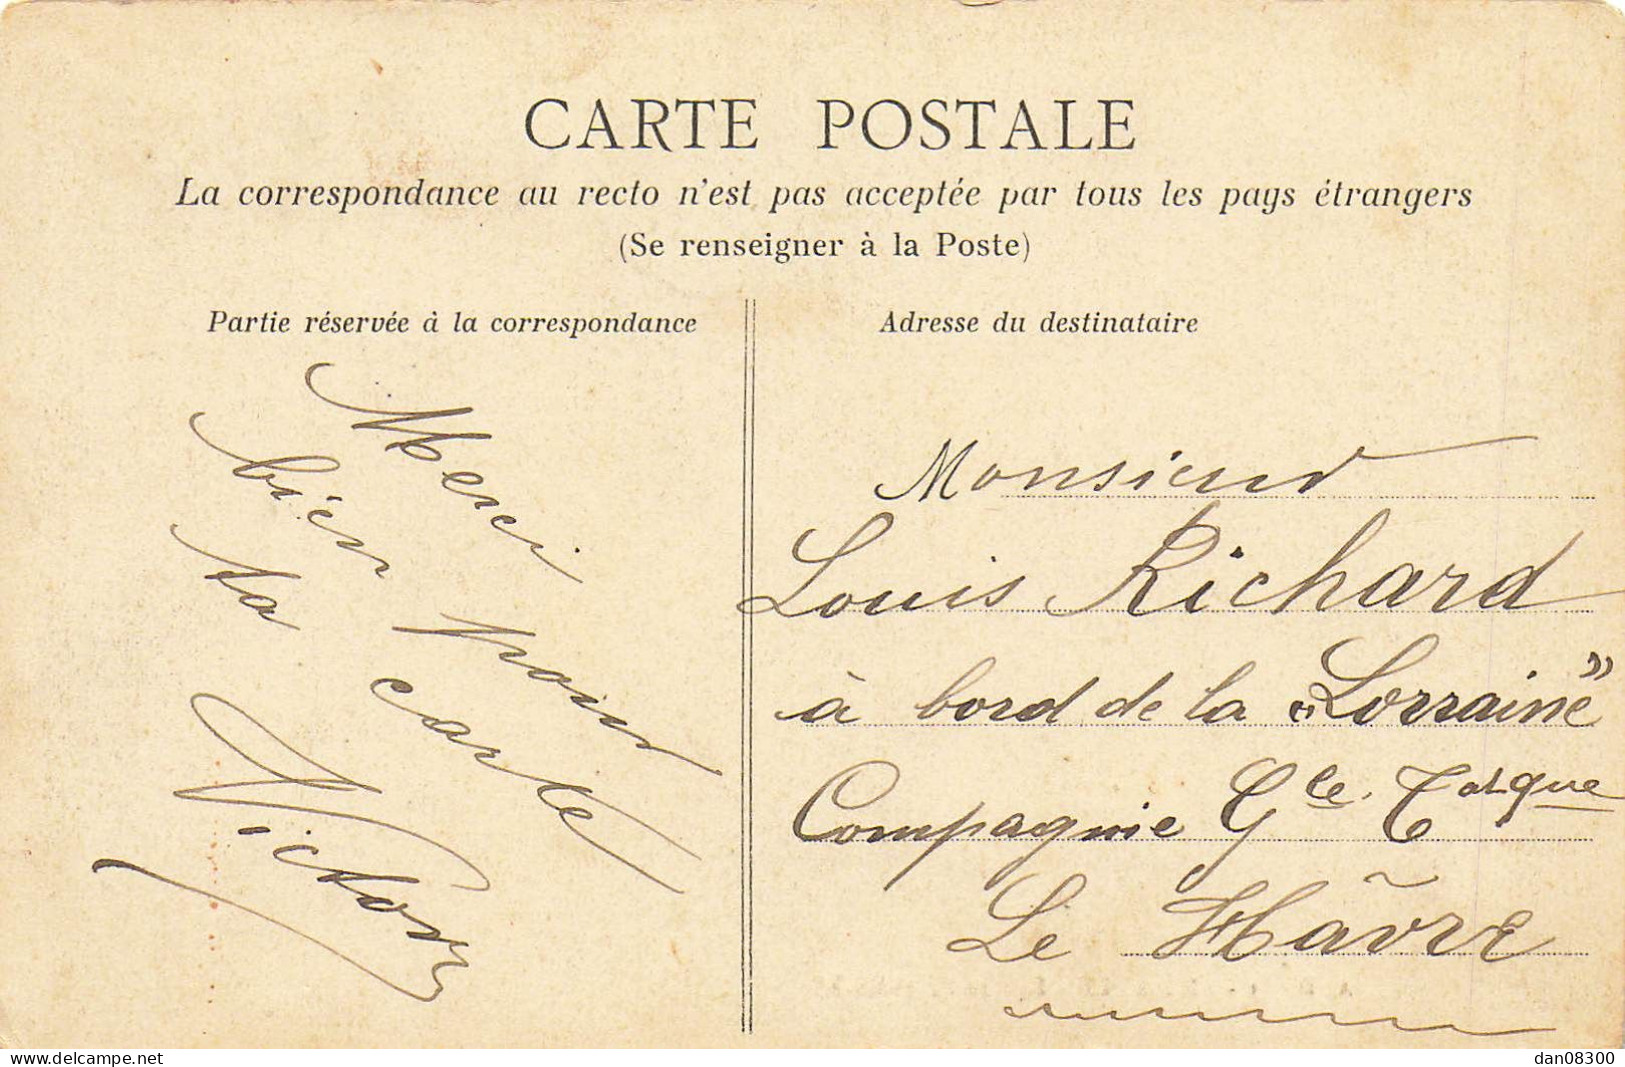 CARTE POSTALE
La correspondance au recto n'est pas acceptée par tous les pays étrangers
(Se renseigner à la Poste)
Partie réservée à la correspondance
Merci
bien pour
ta carte
Victor
Adresse du destinataire
Monsieur
Louis Richard
à bord de la "Lorraine"
Compagnie Gle Tatque
Le Hâvre
www.delcampe.net
dan08300